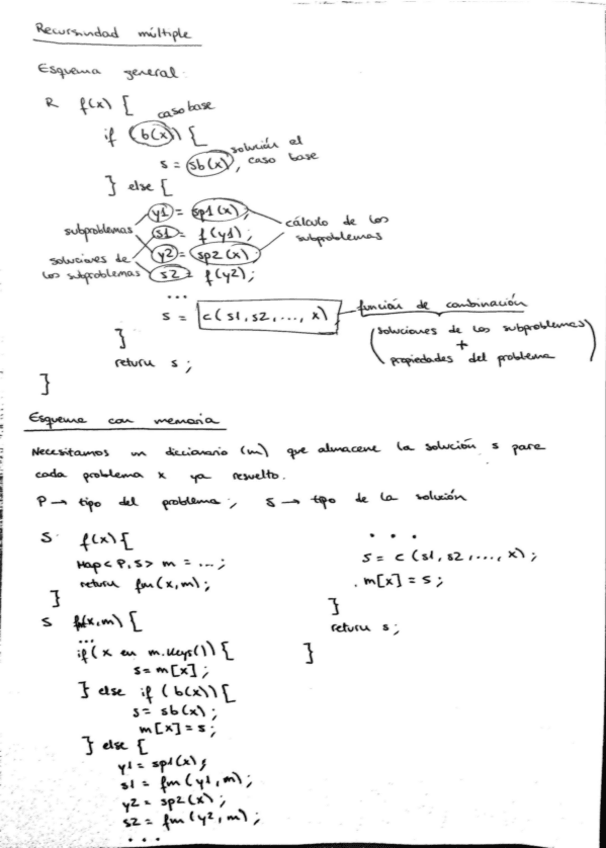 Recursividad múltiple
Esquema general:
R f(x) {
caso base
if (b(x)) {
s = sb(x); solución al caso base
} else {
y1 = sp1(x);
s1 = f(y1);
y2 = sp2(x);
s2 = f(y2);
subproblemas
soluciones de
los subproblemas
cálculo de los
subproblemas
...
s = c(s1, s2, ..., x)
función de combinación
(soluciones de los subproblemas)
+
propiedades del problema
}
return s;
}
Esquema con memoria
Necesitamos un diccionario (m) que almacene la solución s para
cada problema x ya resuelto.
P → tipo del problema; S → tipo de la solución
S f(x) {
Map<P,S> m = ...;
return fm(x,m);
}
S fm(x,m) {
...
if (x en m.keys()) {
s = m[x];
} else if (b(x)) {
s = sb(x);
m[x] = s;
} else {
y1 = sp1(x);
s1 = fm(y1, m);
y2 = sp2(x);
s2 = fm(y2, m);
...
...
s = c(s1, s2, ..., x);
m[x] = s;
}
return s;
}